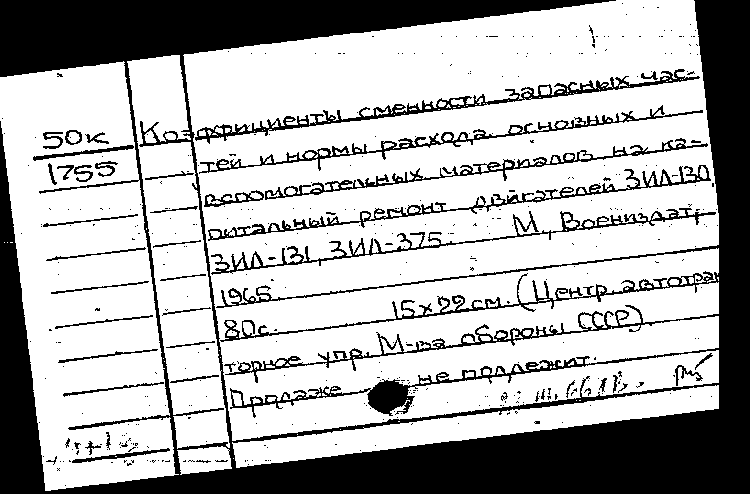 50к
1755
Коэффициенты сменности запасных час-
тей и нормы расхода основных и
вспомогательных материалов на ка-
питальный ремонт двигателей ЗИЛ-130,
ЗИЛ-131, ЗИЛ-375. М., Воениздат,
1965.
80с. 15х22см. (Центр. автотрак
торное упр. М-ва обороны СССР).
Продаже не подлежит.